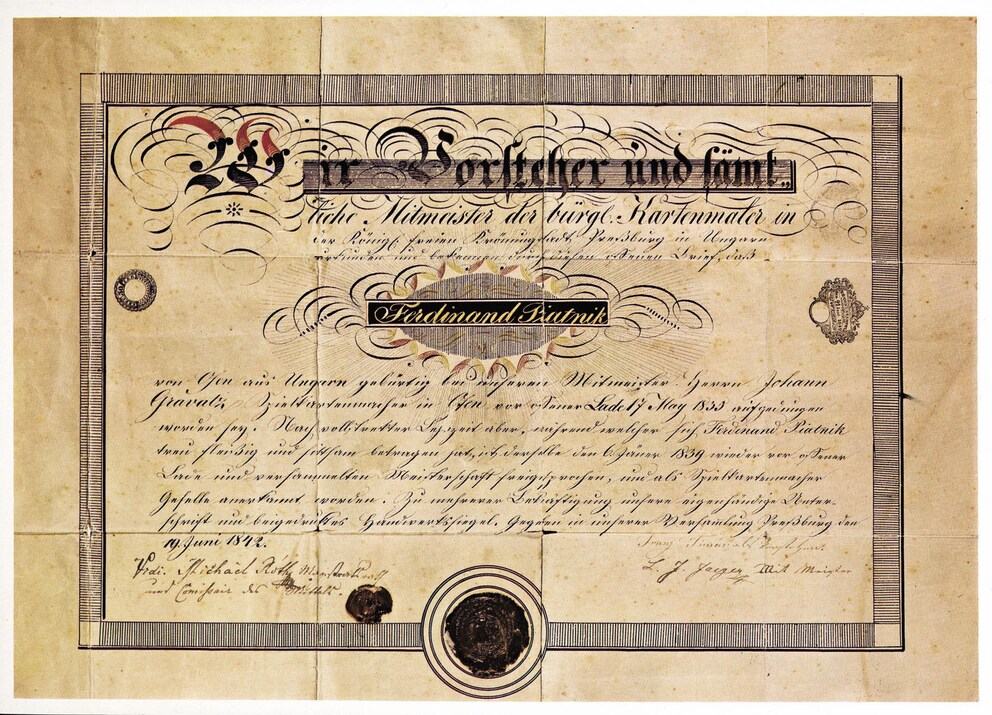 Wir Vorsteher und sämt„
liche Mitmeister der bürgl. Kartenmaler in
der Königl. freien Krönungstadt Preßburg in Ungarn
urkunden und bekennen durch diesen offenen Brief, daß
Ferdinand Piatnik
von Ofen aus Ungarn gebürtig bei unseren Mitmeister Herrn Johann
Spielkartenmacher in Ofen vor offener Lade 17 May 1833 aufgedungen
worden sey. Nach vollstrekter Lehrzeit aber, während welcher sich Ferdinand Piatnik
treu fleißig und sittsam betragen hat, ist derselbe den 6 Jäner 1839 wieder vor offener
Lade und versammelten Meisterschaft freigesprochen, und als Spielkartenmacher
Geselle anerkannt worden. Zu mehrerer Bekräftigung unsere eigenhändige Unter-
schrift und beigedruktes Handwerkssiegel. Gegeben in unserer Versamlung Preßburg den
19 Juni 1842.
Vidi. Michael Róth
und des
Jaeger Mit Meister